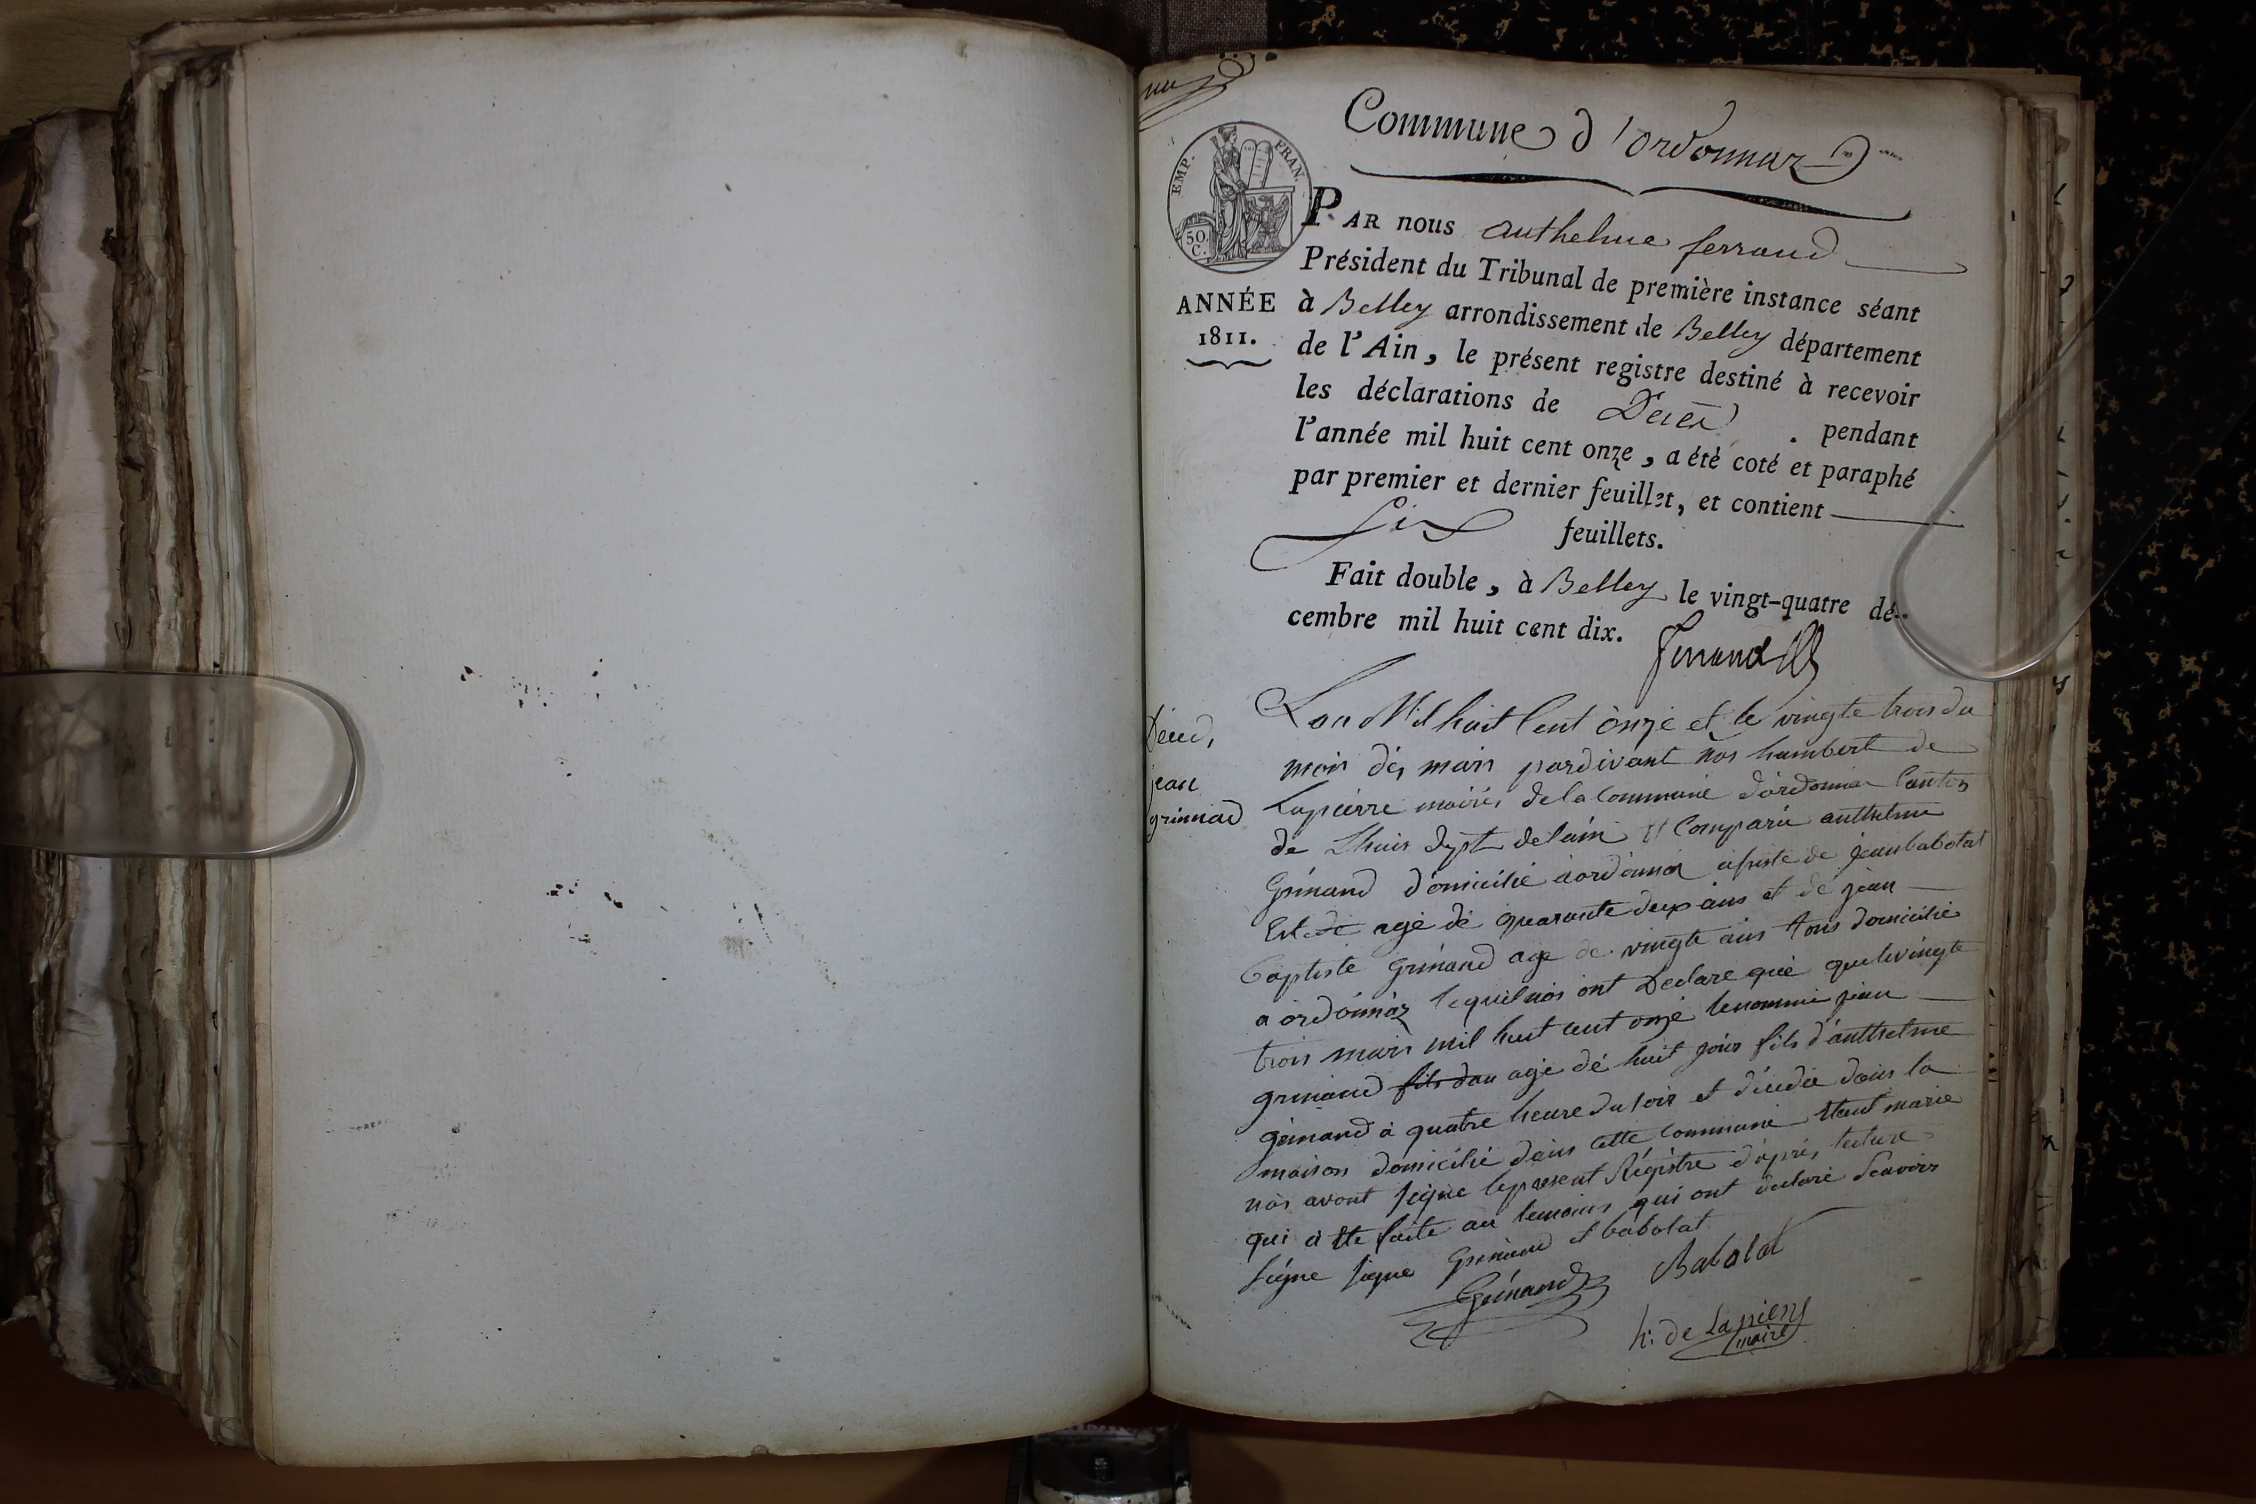 un
Commune d'ordonnaz
EMP. FRAN.
50 C.
ANNÉE
1811.
PAR nous anthelme ferrand
Président du Tribunal de première instance séant
à Belley arrondissement de Belley département
de l'Ain, le présent registre destiné à recevoir
les déclarations de Décès pendant
l'année mil huit cent onze, a été coté et paraphé
par premier et dernier feuillet, et contient
Six feuillets.
Fait double, à Belley le vingt-quatre dé-
cembre mil huit cent dix.
ferrand
Décès,
jean
grinand
Lan Mil huit Cent onze et le vingte trois du
mois dés mars pardivant nos humbert de
Lapierre maires de la Commune d'ordonnar Canton
de Lhuis dept delain Comparu anthelme
Grinand domicilié a ordonnar jean babolat
agé dé quarante deux ans et de jean
baptiste Grinand age de vingte ans tous domicilié
a ordonnaz lequel nos ont Declare qué que le vingte
trois mars mil huit cent onze le nommé jean
grinand fils dan agé dé huit jour fils d'anthelme
grinand à quatre heure du soir et décédé dans la
maison domicilié dans cette commune
nos avont signé le present Régistre d'aprés lecture
qui a ete faite au temoins qui ont declaré Scavoir
signe signe Grinand et babolat
Grinand Babolat
h: de Lapierre
maire